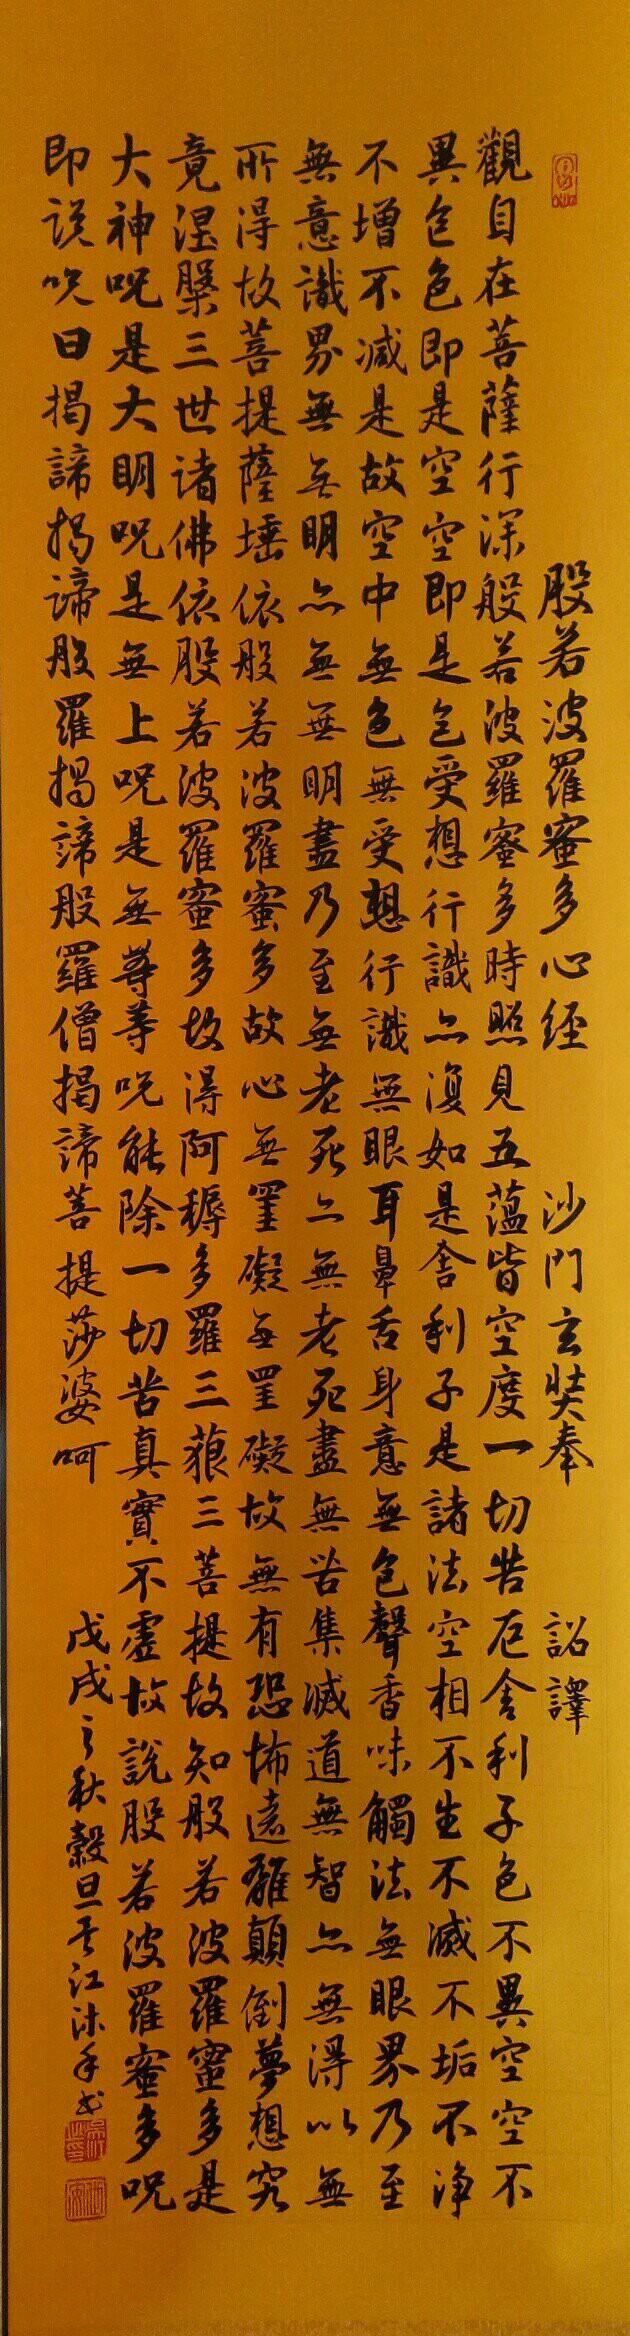 般若波羅蜜多心經 沙門玄奘奉 詔譯
觀自在菩薩行深般若波羅蜜多時照見五蘊皆空度一切苦厄舍利子色不異空空不
異色色即是空空即是色受想行識亦復如是舍利子是諸法空相不生不滅不垢不淨
不增不減是故空中無色無受想行識無眼耳鼻舌身意無色聲香味觸法無眼界乃至
無意識界無無明亦無無明盡乃至無老死亦無老死盡無苦集滅道無智亦無得以無
所得故菩提薩埵依般若波羅蜜多故心無罣礙無罣礙故無有恐怖遠離顛倒夢想究
竟涅槃三世諸佛依般若波羅蜜多故得阿耨多羅三藐三菩提故知般若波羅蜜多是
大神呪是大明呪是無上呪是無等等呪能除一切苦真實不虛故說般若波羅蜜多呪
即說呪曰揭諦揭諦般羅揭諦般羅僧揭諦菩提莎婆呵
戊戌之秋穀旦吳江沐手書